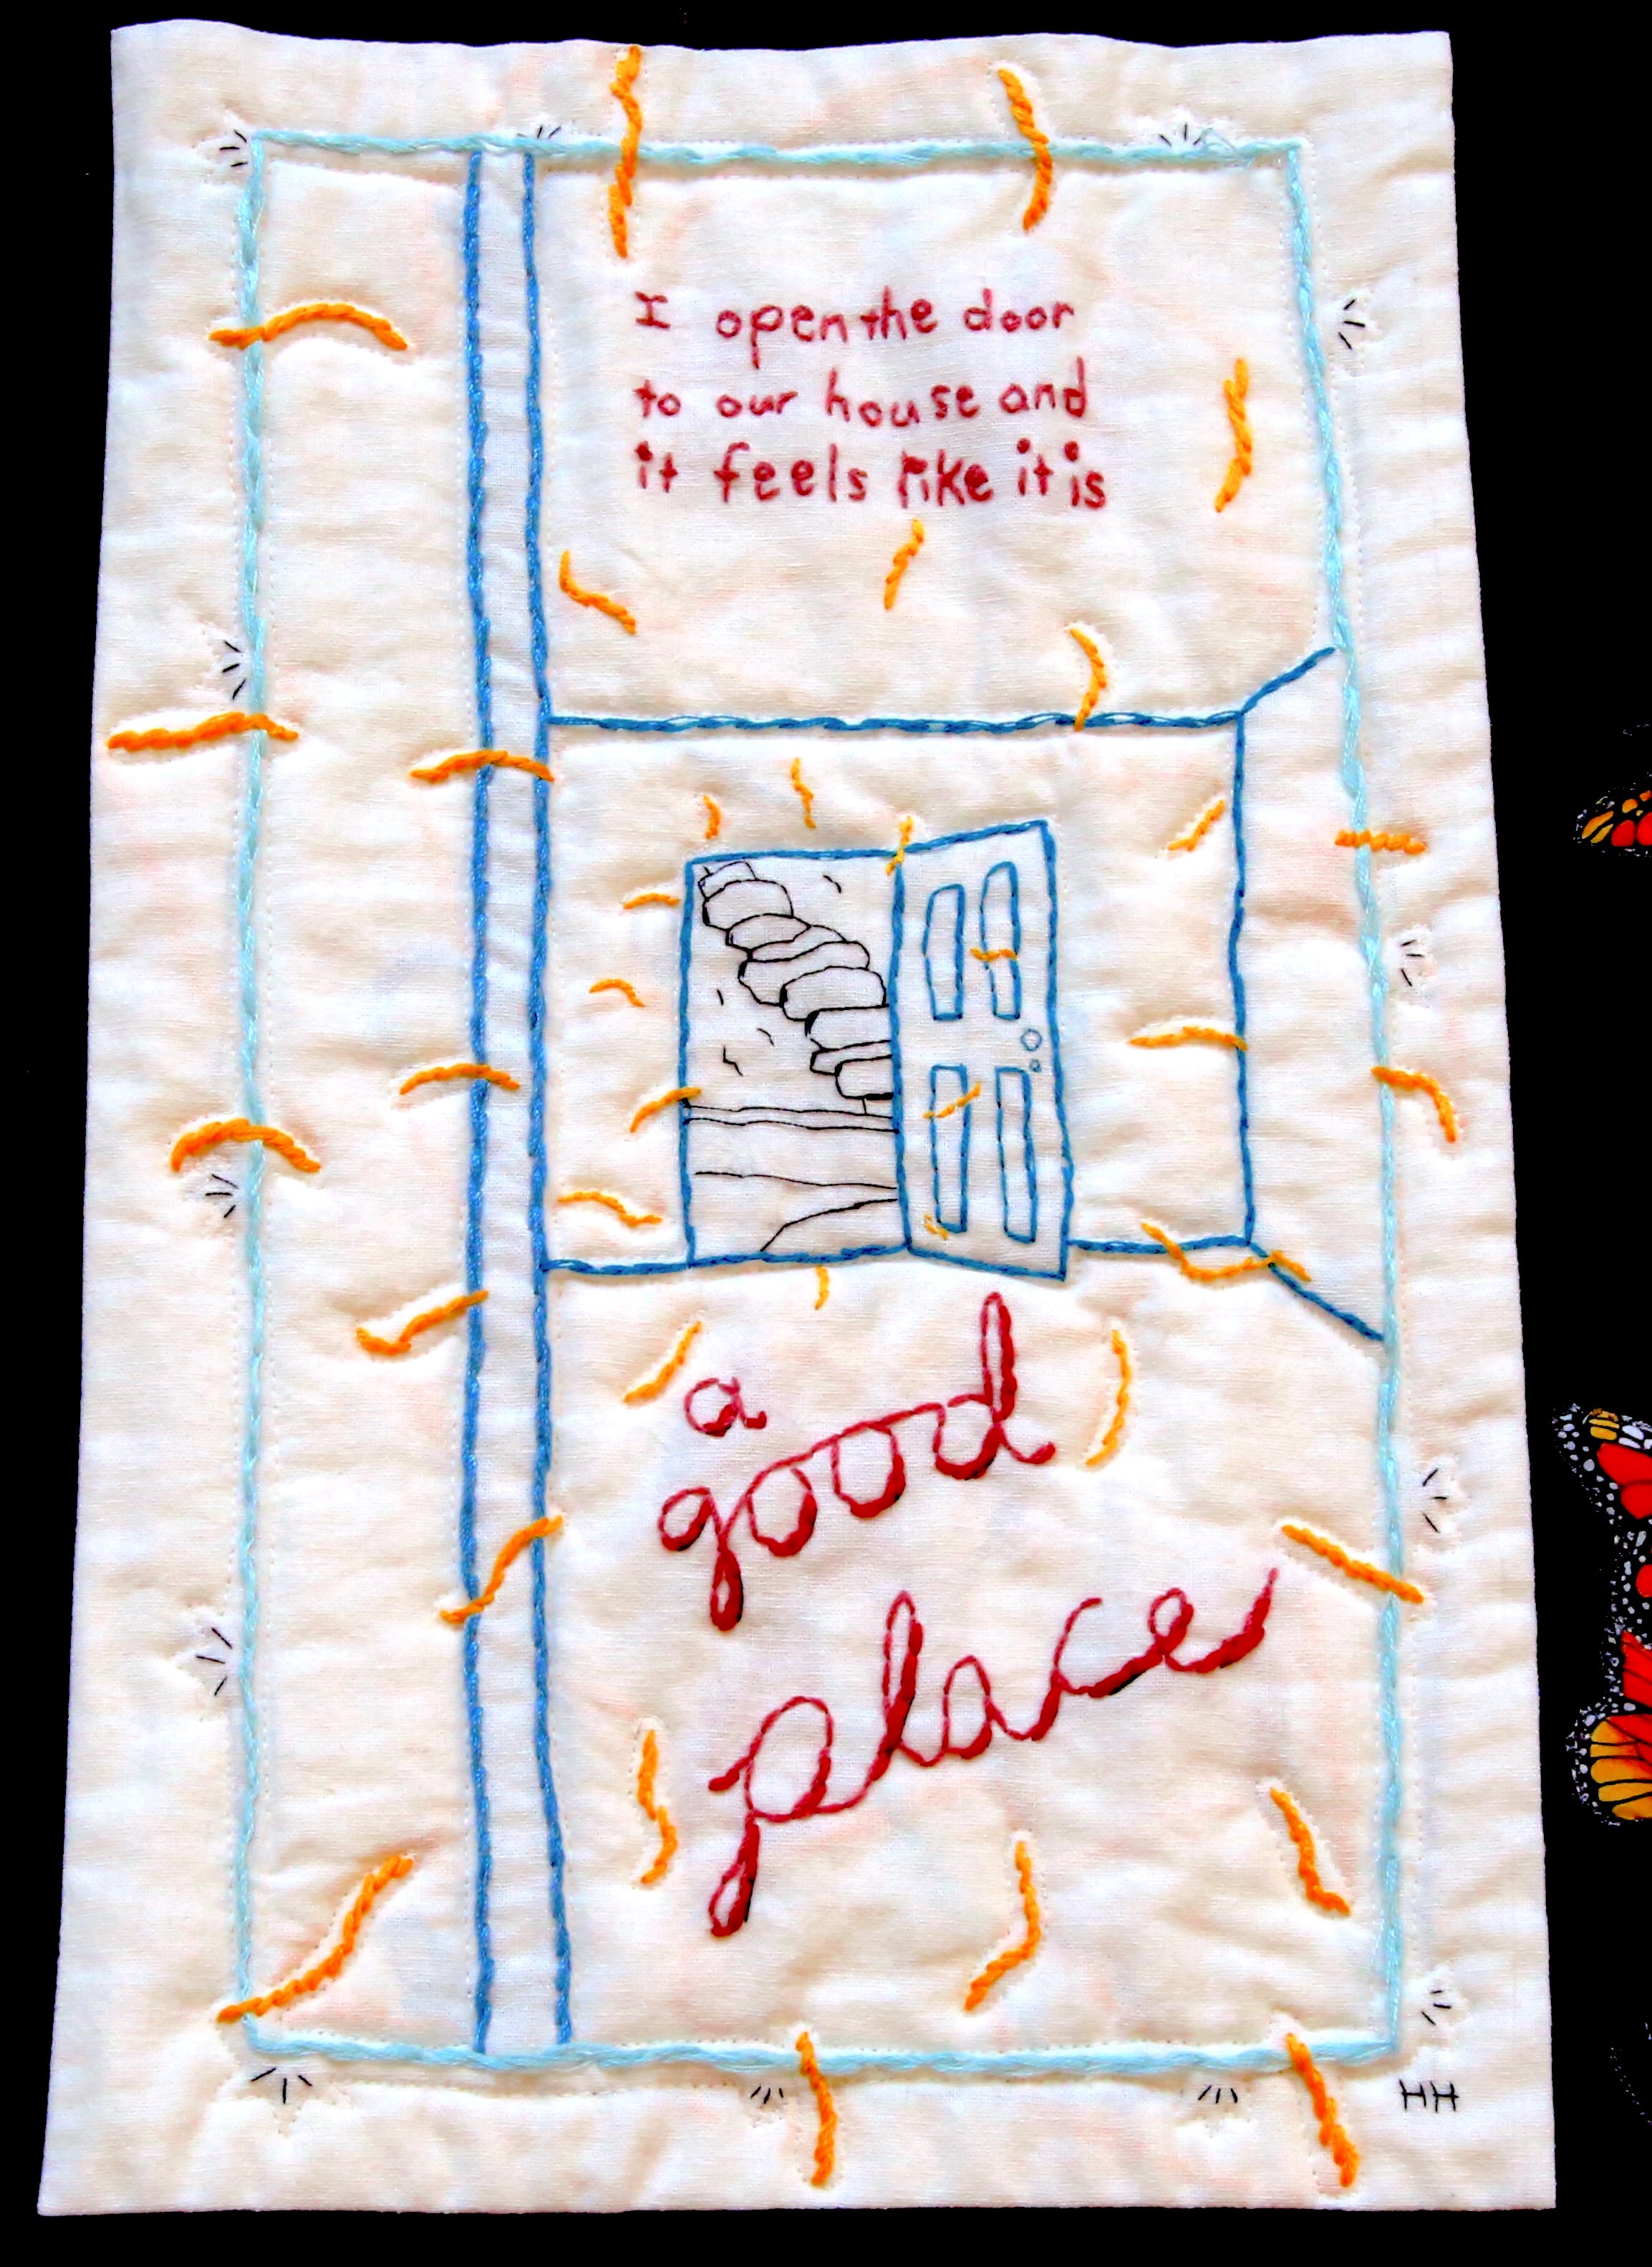 I open the door
to our house and
it feels like it is
a
good
place
HH